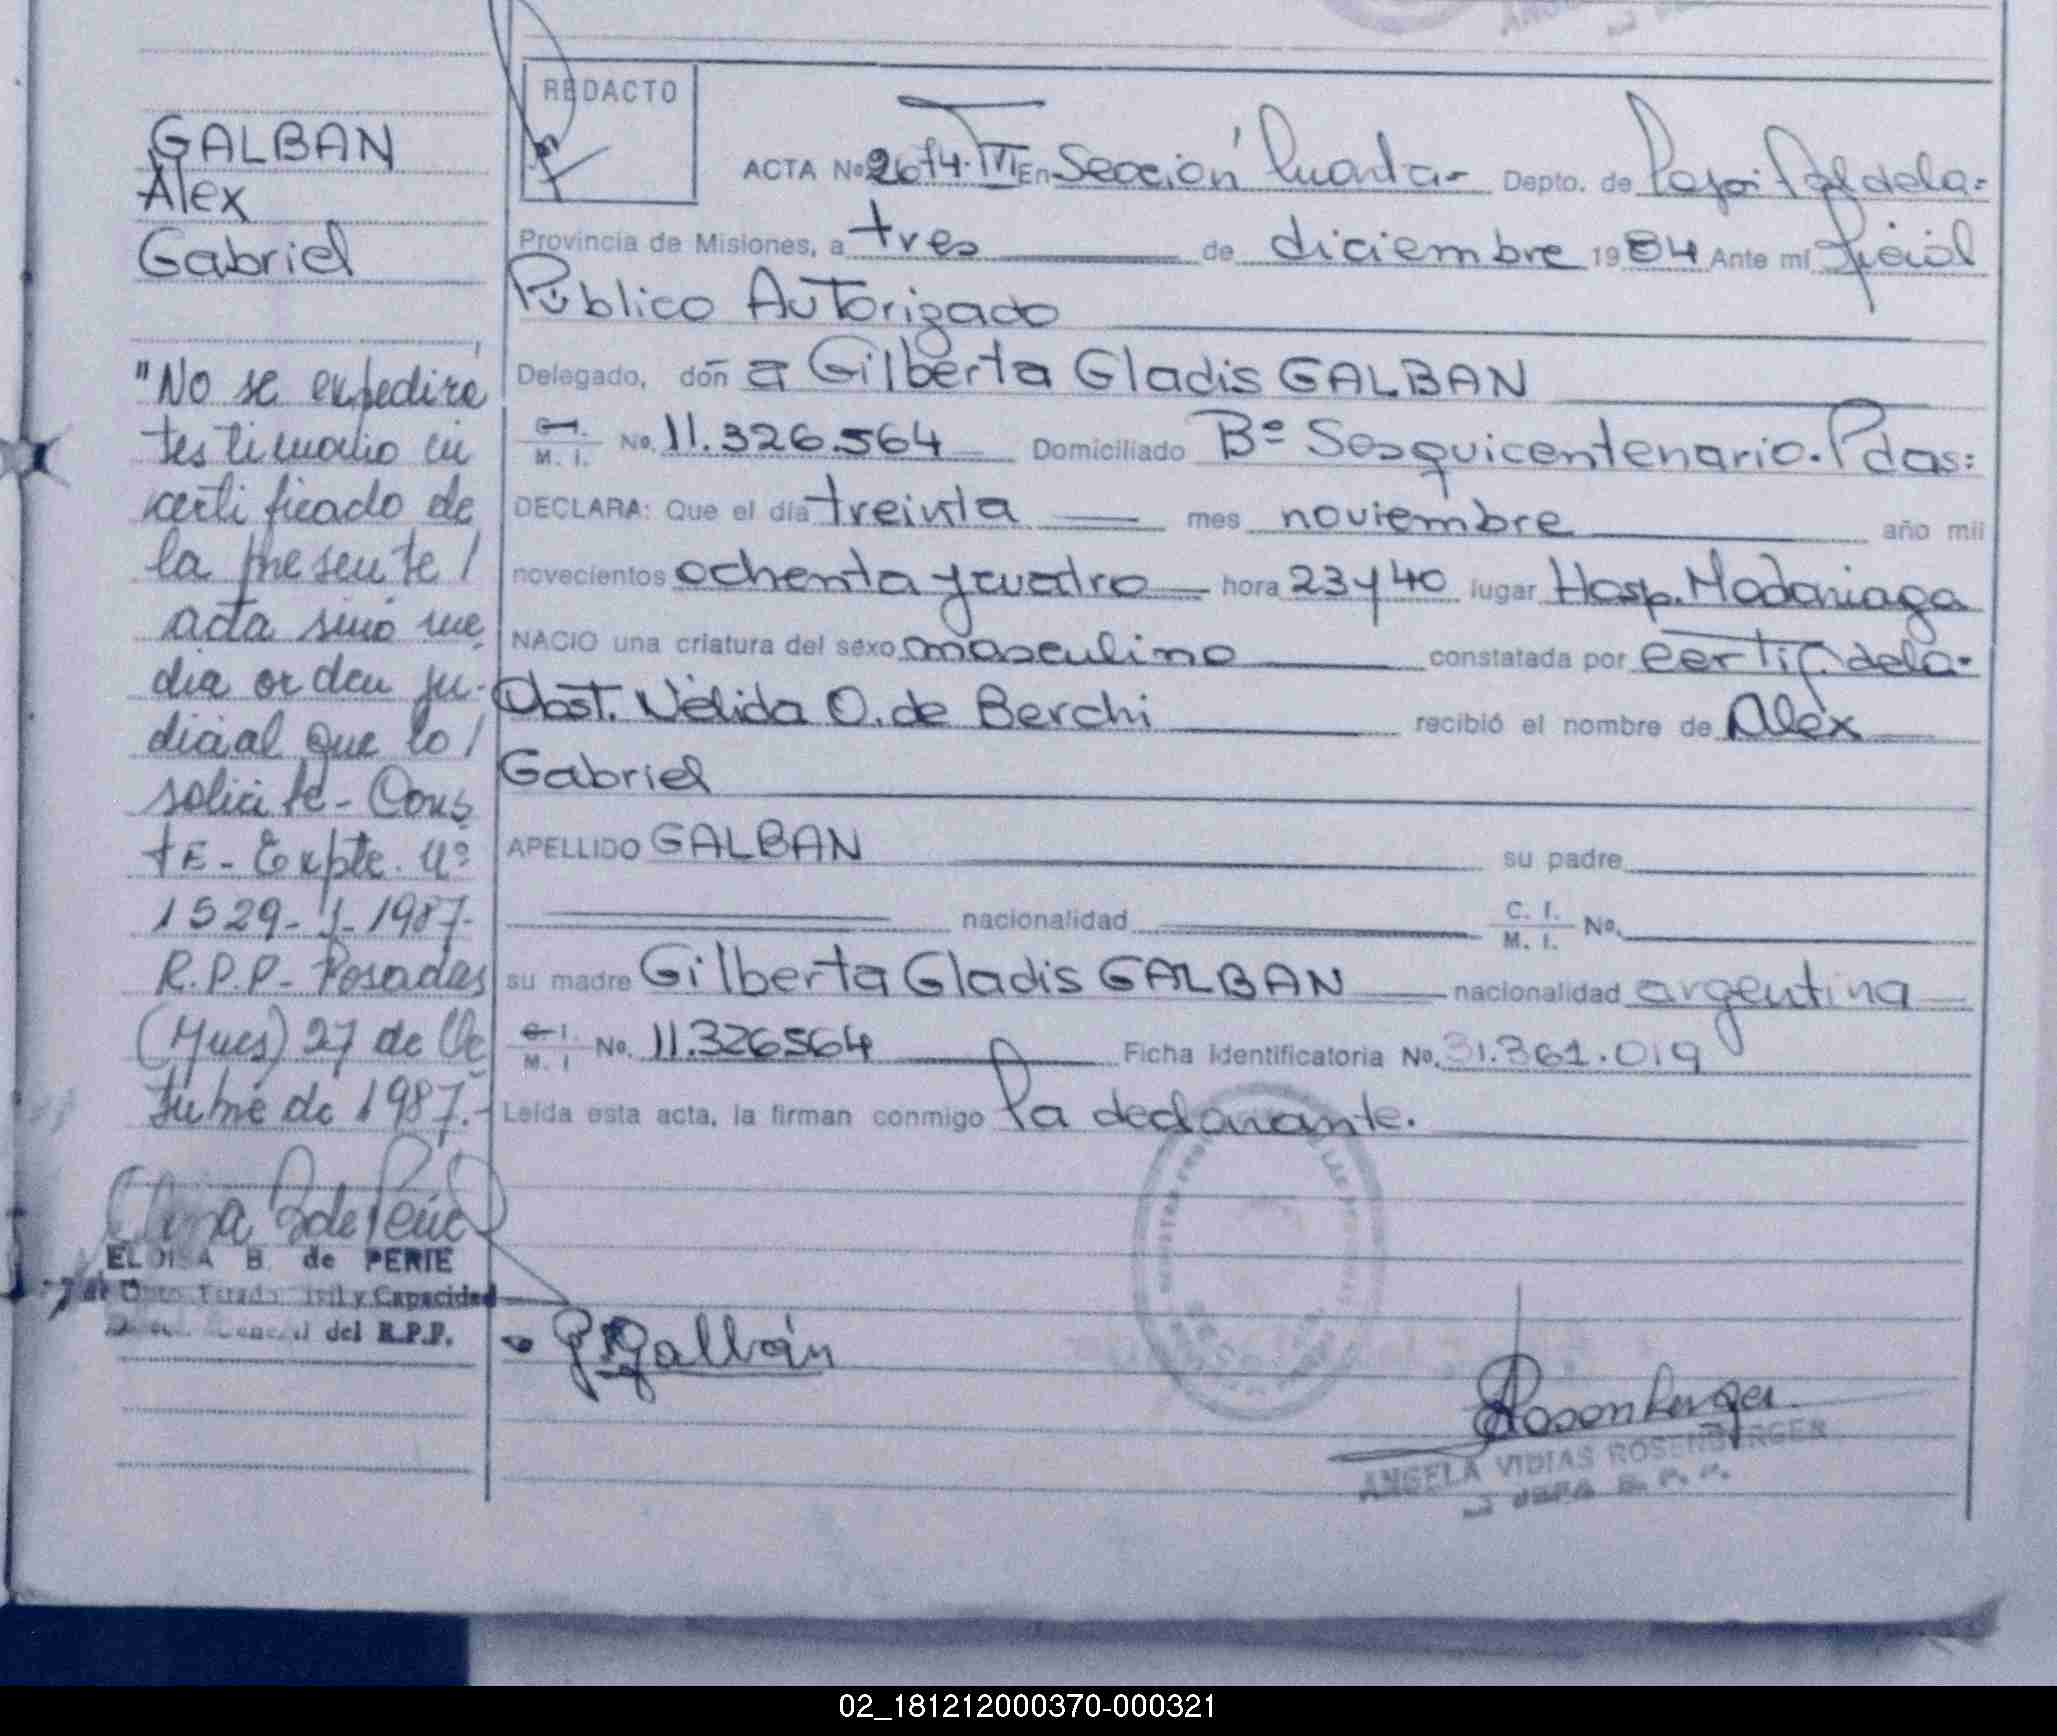 GALBAN
Alex
Gabriel
"No se expedirá
testimonio ni
certificado de
la presente /
acta sino me
dia orden ju-
dicial que lo /
solicite - Cons
te - Expte. nº
1529- -1987-
R.P.P- Posadas
(Mnes) 27 de Oc
tubre de 1987.-
ELOISA B. de PERIE
Civil y Capacidad
General del R.P.P.
REDACTO
ACTA No 2674. VI En Sección Cuarta- Depto. de Cap. dela-
Provincia de Misiones, a tres de diciembre 1984 Ante mí Oficial
Público Autorizado
Delegado, don a Gilberta Gladis GALBAN
C. I. M. I. No. 11.326.564 Domiciliado Bº Sesquicentenario. Pdas:
DECLARA: Que el día treinta mes noviembre año mil
novecientos ochenta y cuatro hora 23 y 40 lugar Hosp. Madariaga
NACIO una criatura del sexo masculino constatada por certif. dela-
Obst. Nélida O. de Berchi recibió el nombre de Alex
Gabriel
APELLIDO GALBAN su padre
nacionalidad C. I. M. I. No.
su madre Gilberta Gladis GALBAN nacionalidad argentina
C. I. M. I No. 11.326564 Ficha Identificatoria No. 31.361.019
Leída esta acta, la firman conmigo la declarante.
G Galbán
Rosenberger
ANGELA VIDIAS ROSENBERGER
JEFA R. P. P.
02_181212000370-000321